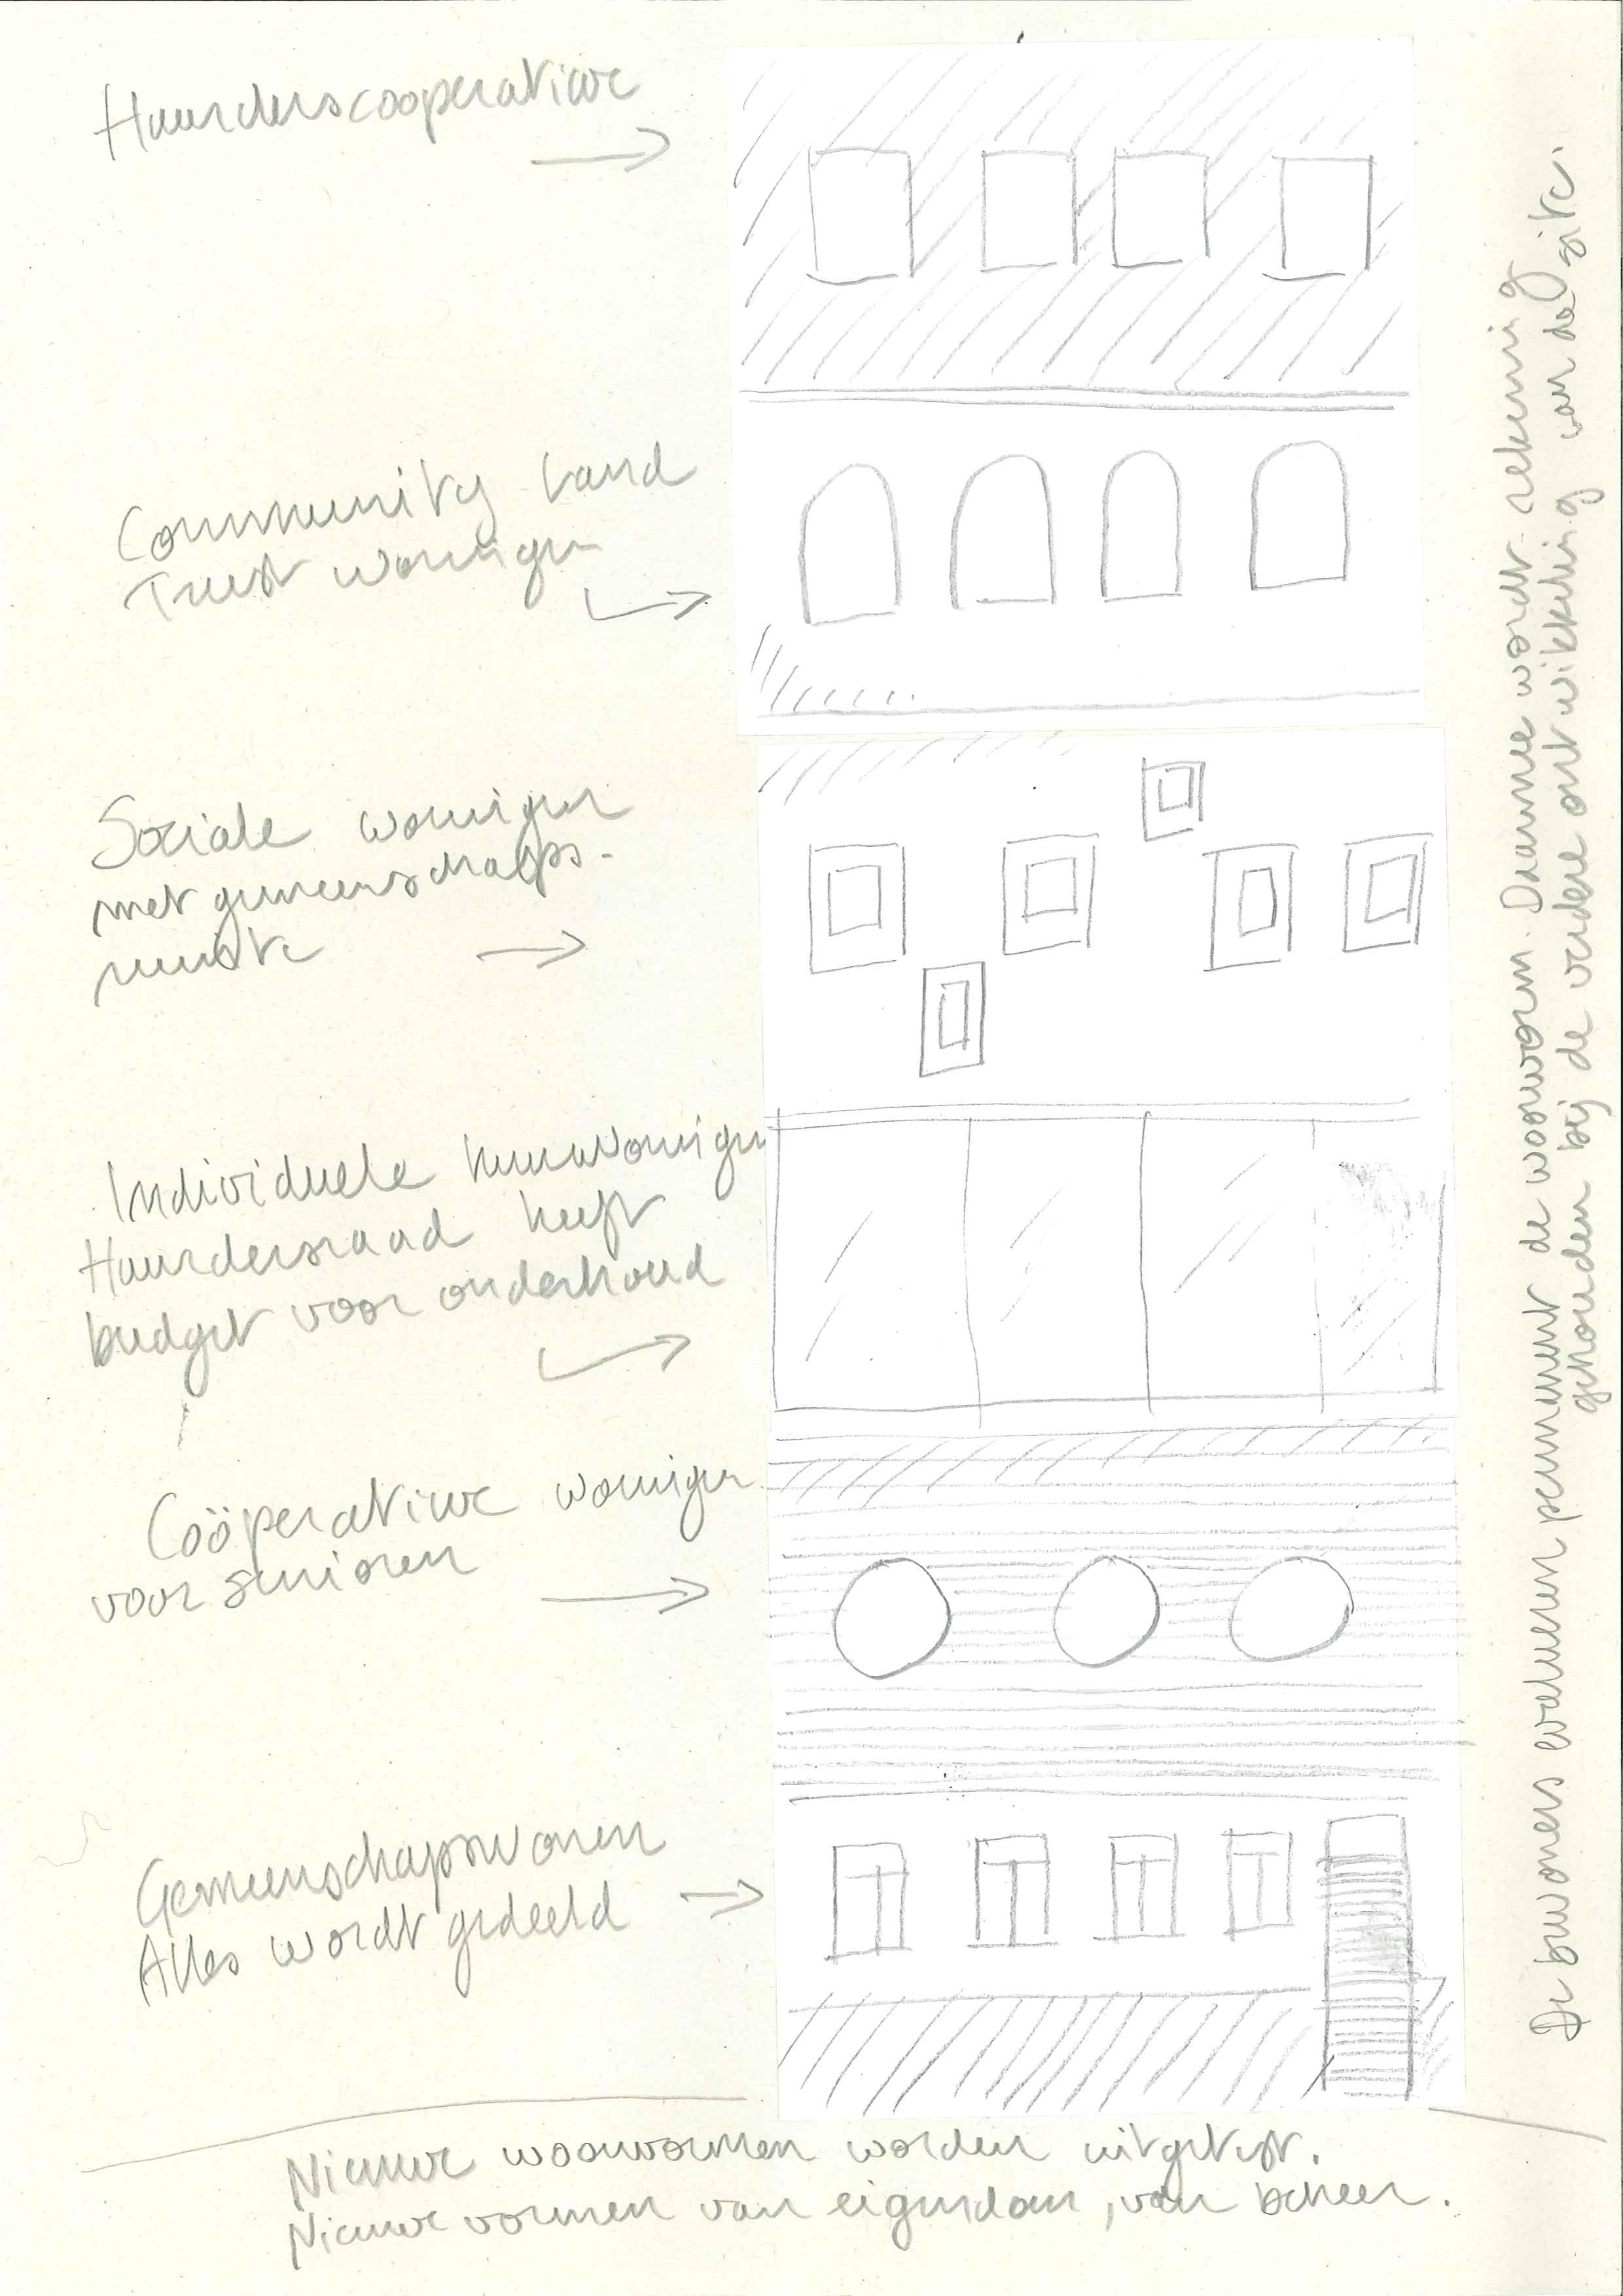 Huurderscooperatieve
Community Land
Trust woningen
Sociale woningen
met gemeenschaps-
ruimte
Individuele huurwoningen
Huurdersraad heeft
budget voor onderhoud
Coöperatieve woningen
voor senioren
Gemeenschapswonen
Alles wordt gedeeld
Nieuwe woonvormen worden uitgetest.
Nieuwe vormen van eigendom, van beheer.
De bewoners evalueren permanent de woonvorm. Daarmee wordt rekening
gehouden bij de verdere ontwikkeling van de site.